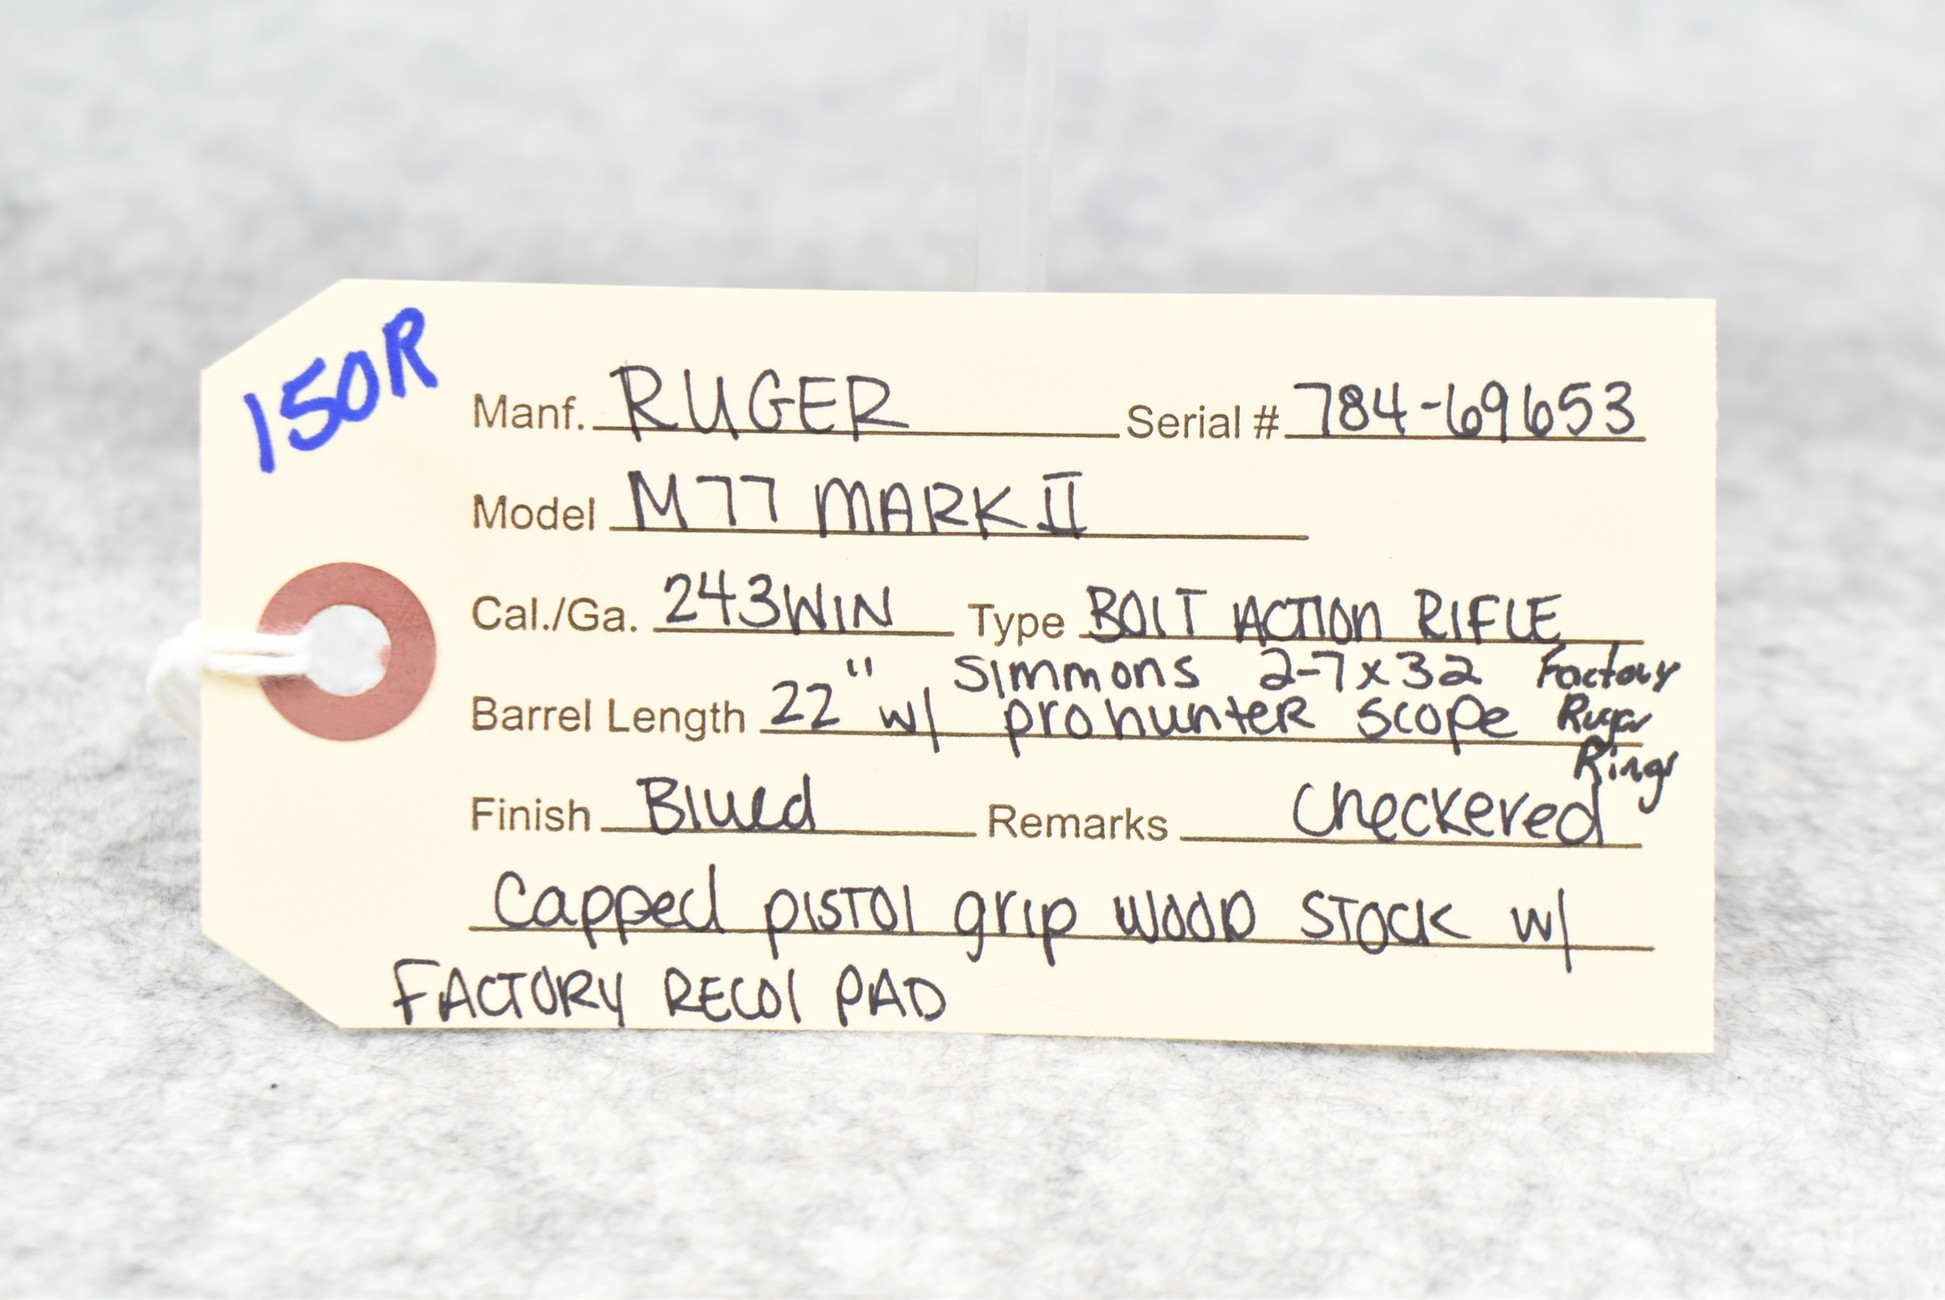 150R
Manf. RUGER Serial # 784-69653
Model M77 MARK II
Cal./Ga. 243WIN Type BOLT ACTION RIFLE
Simmons 2-7x32 Factory
Barrel Length 22" w/ prohunter scope Ruger
Rings
Finish Blued Remarks Checkered
Capped pistol grip wood stock w/
FACTORY RECOI PAD